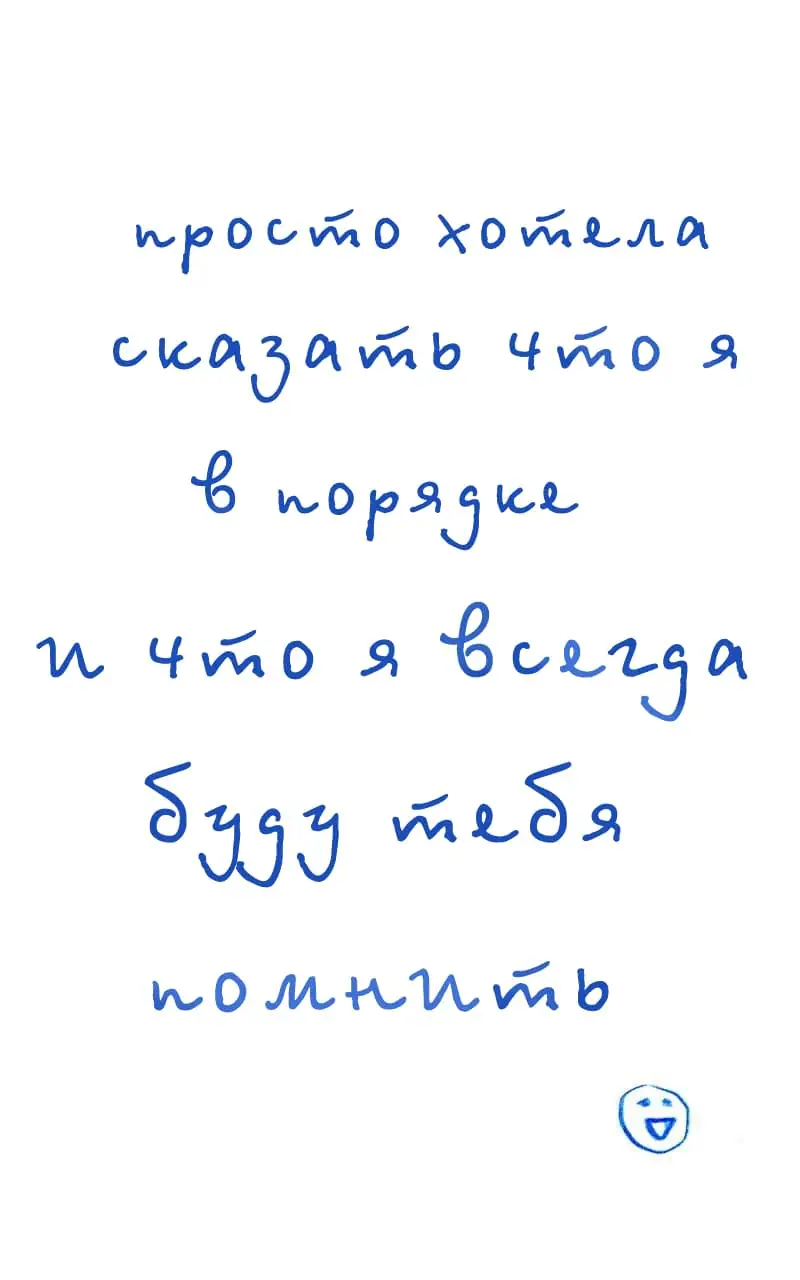 просто хотела
сказать что я
в порядке
и что я всегда
буду тебя
помнить